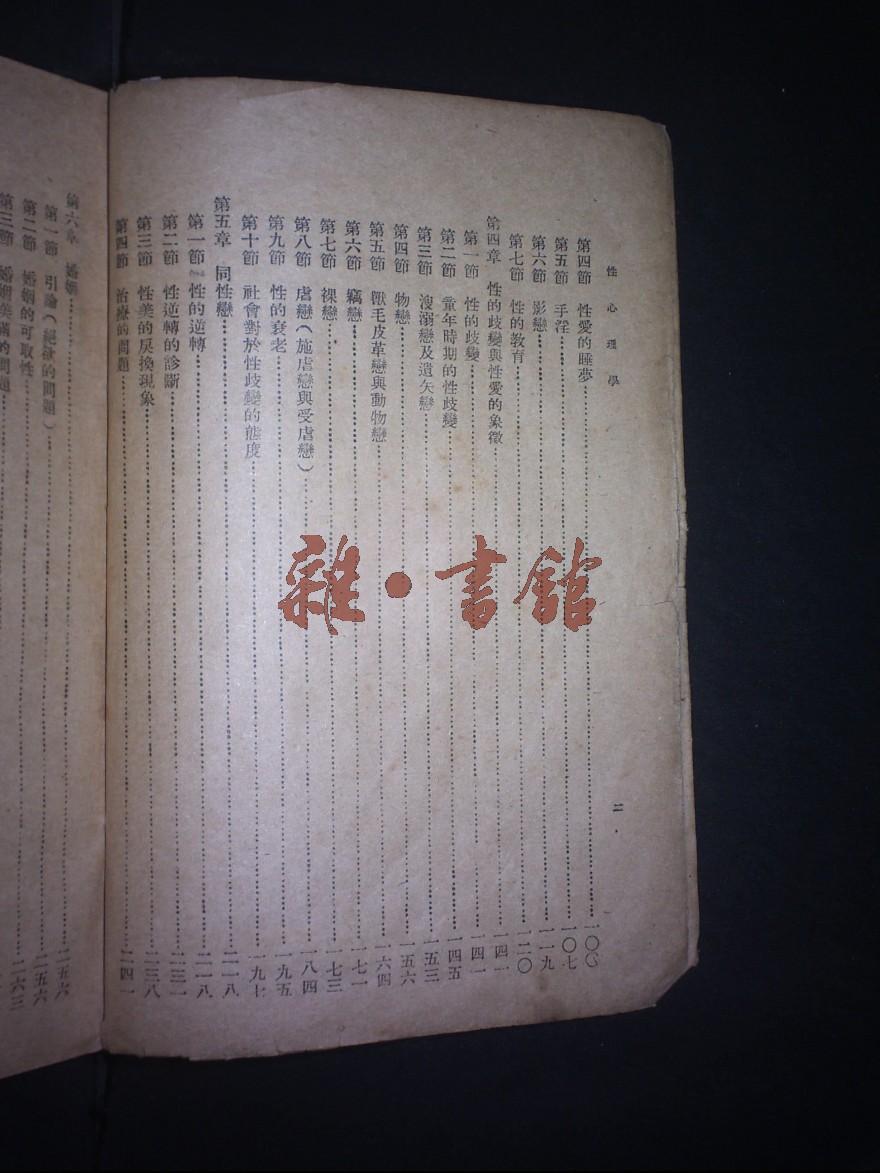 性心理學
二
第四節 性愛的睡夢 一〇〇
第五節 手淫 一〇七
第六節 影戀 一一九
第七節 性的教育 一二〇
第四章 性的歧變與性愛的象徵 一四一
第一節 性的歧變 一四一
第二節 童年時期的性歧變 一四五
第三節 溲溺戀及遺矢戀 一五三
第四節 物戀 一五六
第五節 獸毛皮革戀與動物戀 一六四
第六節 竊戀 一七一
第七節 裸戀 一七三
第八節 虐戀(施虐戀與受虐戀) 一八四
第九節 性的衰老 一九五
第十節 社會對於性歧變的態度 一九七
第五章 同性戀 二一八
第一節 性的逆轉 二一八
第二節 性逆轉的診斷 二三一
第三節 性美的戾換現象 二三八
第四節 治療的問題 二四一
第六章 婚姻 二五六
第一節 引論(絕欲的問題) 二五六
第二節 婚姻的可取性 二六三
第三節 婚姻美滿的問題
雜·書館